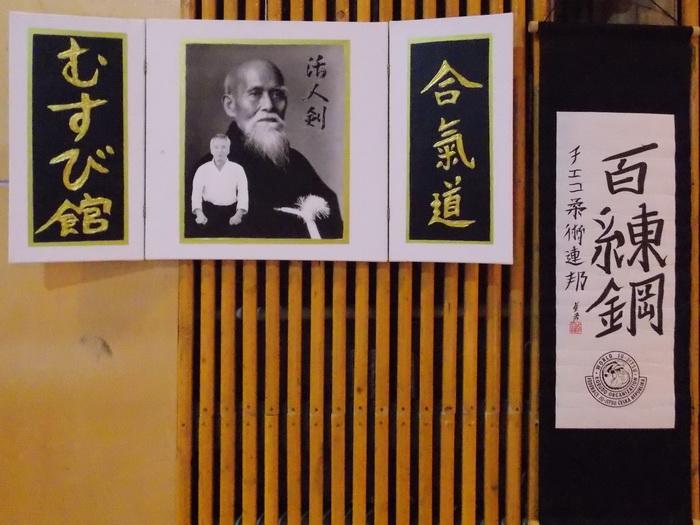 むすび館
活人剣
合氣道
百練鋼
チエコ柔術連邦
WORLD JU-JITSU
KOBUDO ORGANIZATION